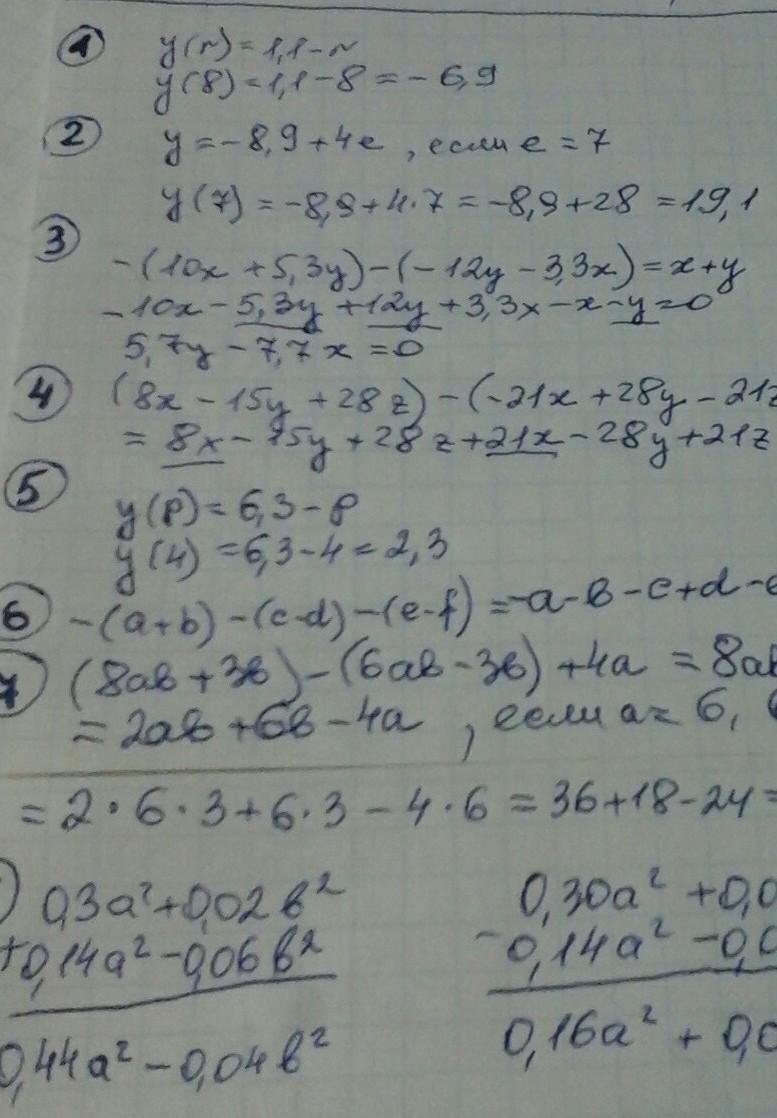 1 y(n) = 1,1 - n
y(8) = 1,1 - 8 = - 6,9
2 y = - 8,9 + 4e , если e = 7
y(7) = -8,9 + 4·7 = -8,9 + 28 = 19,1
3
-(10x + 5,3y) - (-12y - 3,3x) = x + y
-10x - 5,3y + 12y + 3,3x - x - y = 0
5,7y - 7,7x = 0
4 (8x - 15y + 28z) - (-21x + 28y - 21z
= 8x - 15y + 28z + 21x - 28y + 21z
5
y(p) = 6,3 - p
y(4) = 6,3 - 4 = 2,3
6 -(a+b) - (c-d) - (e-f) = -a-b-c+d-e
7 (8ab + 3b) - (6ab - 3b) + 4a = 8ab
= 2ab + 6b - 4a , если a = 6,
= 2·6·3 + 6·3 - 4·6 = 36 + 18 - 24 =
) 0,3a² + 0,02b² 0,30a² + 0,0
+ 0,14a² - 0,06b² - 0,14a² - 0,0
0,44a² - 0,04b² 0,16a² + 0,0